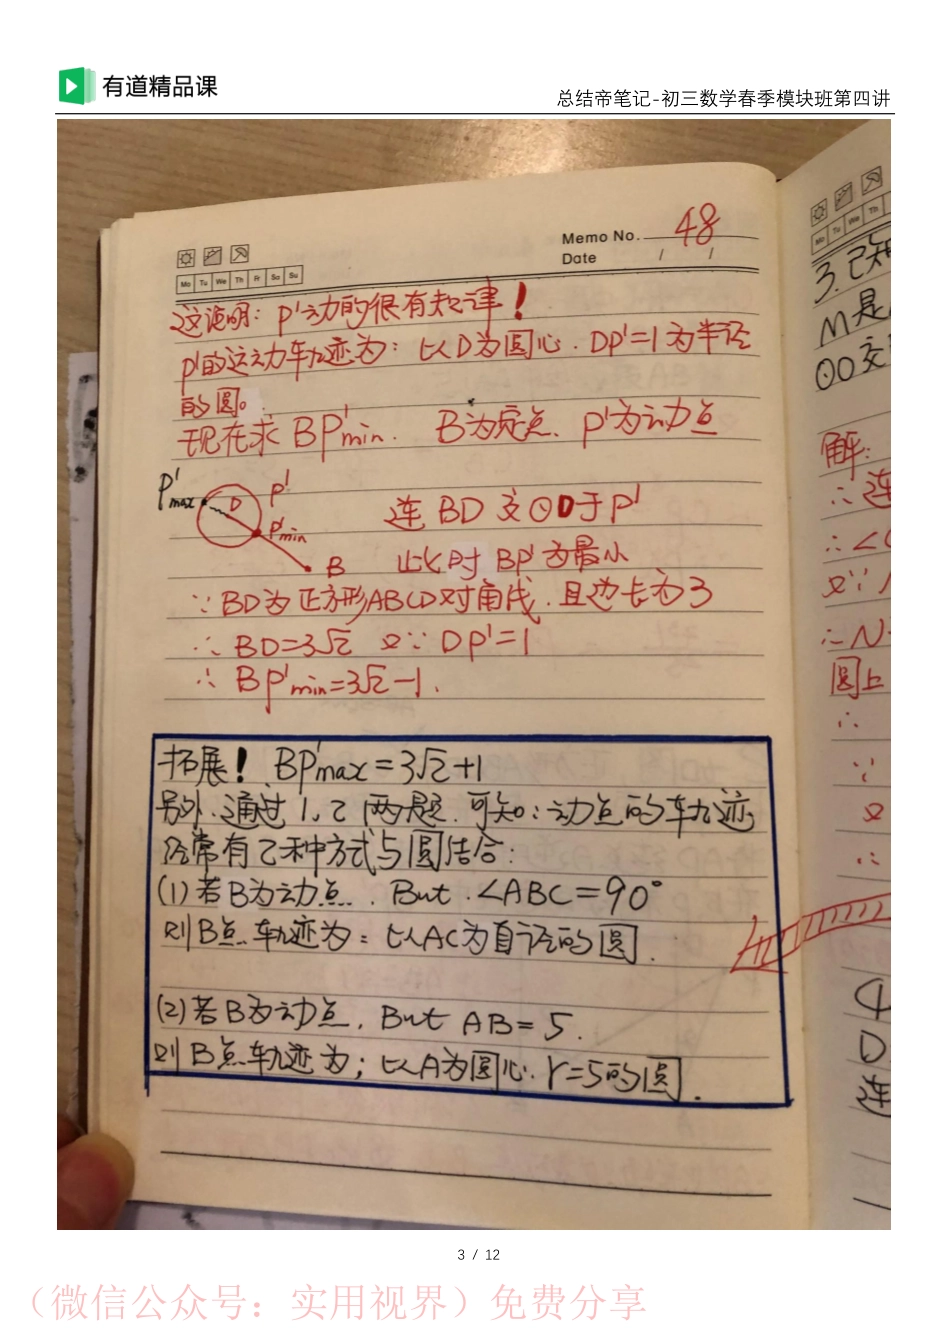 有道精品课
总结帝笔记-初三数学春季模块班第四讲
Memo No. 48
Date / /
Mo Tu We Th Fr Sa Su
这说明：P'动的很有规律！
P'的运动轨迹为：以D为圆心．DP'=1为半径
的圆。
现在求 BP'min． B为定点、P'为动点
P'max D P' P'min B
连 BD 交⊙D于P'
此时 BP'为最小
∵BD为正方形ABCD对角线．且边长为3
∴ BD=3√2 又∵ DP'=1
∴ BP'min=3√2-1．
拓展！ BP'max=3√2+1
另外．通过1、2两题．可知：动点的轨迹
经常有2种方式与圆结合：
(1)若B为动点．But．∠ABC=90°
则B点轨迹为：以AC为直径的圆．
(2)若B为动点．But AB=5．
则B点轨迹为；以A为圆心．r=5的圆．
Mo Tu We Th
3.已知
M是
⊙O交
解：
∴连
∴∠
又∵
∴N
圆上
∴
∵
又
∴
4
D
连
3 / 12
（微信公众号：实用视界）免费分享